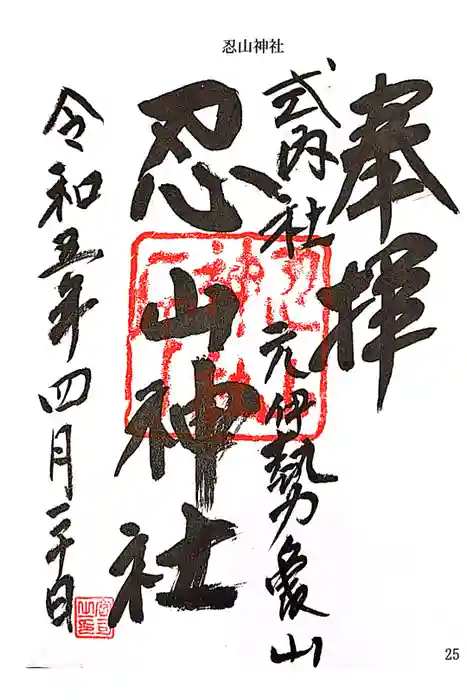 忍山神社
奉拝
式内社 元伊勢亀山
忍山神社
令和五年四月二十日
宮司之印
25